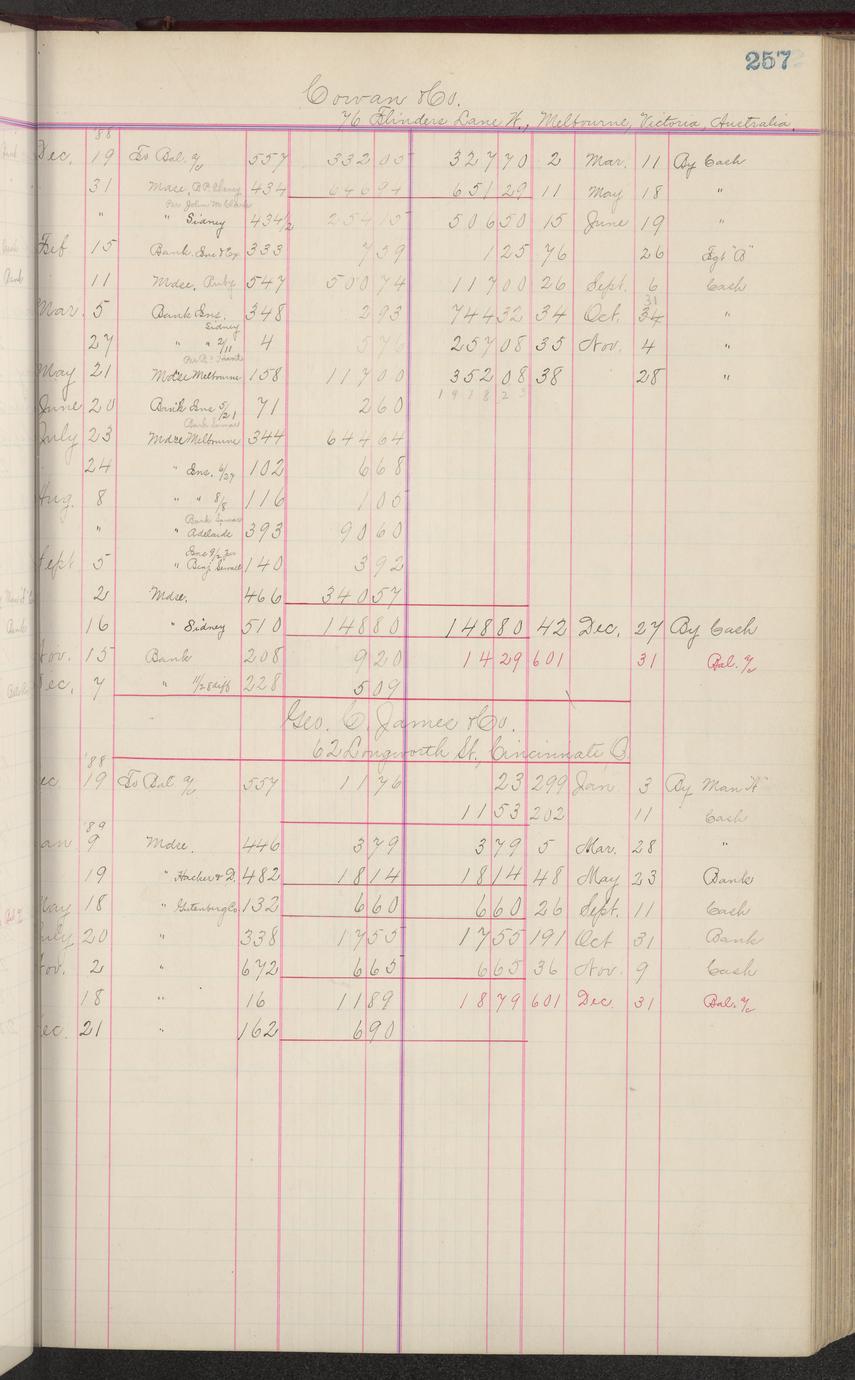 257
Cowan & Co.
76 Flinders Lane W., Melbourne, Victoria, Australia.
'88
Dec. 19 To Bal. a/c 557 332 05 327 70 2 Mar. 11 By Cash
31 Mdse, 434 646 94 651 29 11 May 18 "
Per John McClark
" " Sidney 434 1/2 254 15 506 50 15 June 19 "
Feb 15 Bank Ins & Ex. 333 7 59 125 76 26 Fgt "B"
11 Mdse, Ruby 547 500 74 117 00 26 Sept. 6 Cash
31
Mar. 5 Bank Ins. 348 2 93 744 32 34 Oct. 34 "
Sidney
27 " " 2/11 4 5 76 257 08 35 Nov. 4 "
May 21 Mdse Melbourne 158 117 00 352 08 38 28 "
June 20 Bank Ins 5/21 71 2 60
Bark Sewall
July 23 Mdse Melbourne 344 644 64
24 " Ins. 6/27 102 6 68
Aug. 8 " " 8/8 116 1 05
" " Adelaide 393 90 60
Ins 9/2 per
Sept 5 " Benj Sewall 140 3 92
2 Mdse. 466 340 57
16 " Sidney 510 148 80 148 80 42 Dec. 27 By Cash
Nov. 15 Bank 208 9 20 14 29 601 31 Bal. a/c
Dec. 7 " 11/28 diff 228 5 09
Geo. C. James & Co.
62 Longworth St, Cincinnati O
'88
ec. 19 To Bal a/c 557 11 76 23 299 Jan 3 By Man "A"
11 53 202 11 Cash
'89
an 9 Mdse. 446 3 79 3 79 5 Mar. 28 "
19 " Hacker & D. 482 18 14 18 14 48 May 23 Bank
May 18 " Gutenburg Co 132 6 60 6 60 26 Sept. 11 Cash
July 20 " 338 17 55 17 55 191 Oct 31 Bank
Nov. 2 " 672 6 65 6 65 36 Nov. 9 Cash
18 " 16 11 89 18 79 601 Dec. 31 Bal. a/c
ec. 21 " 162 6 90